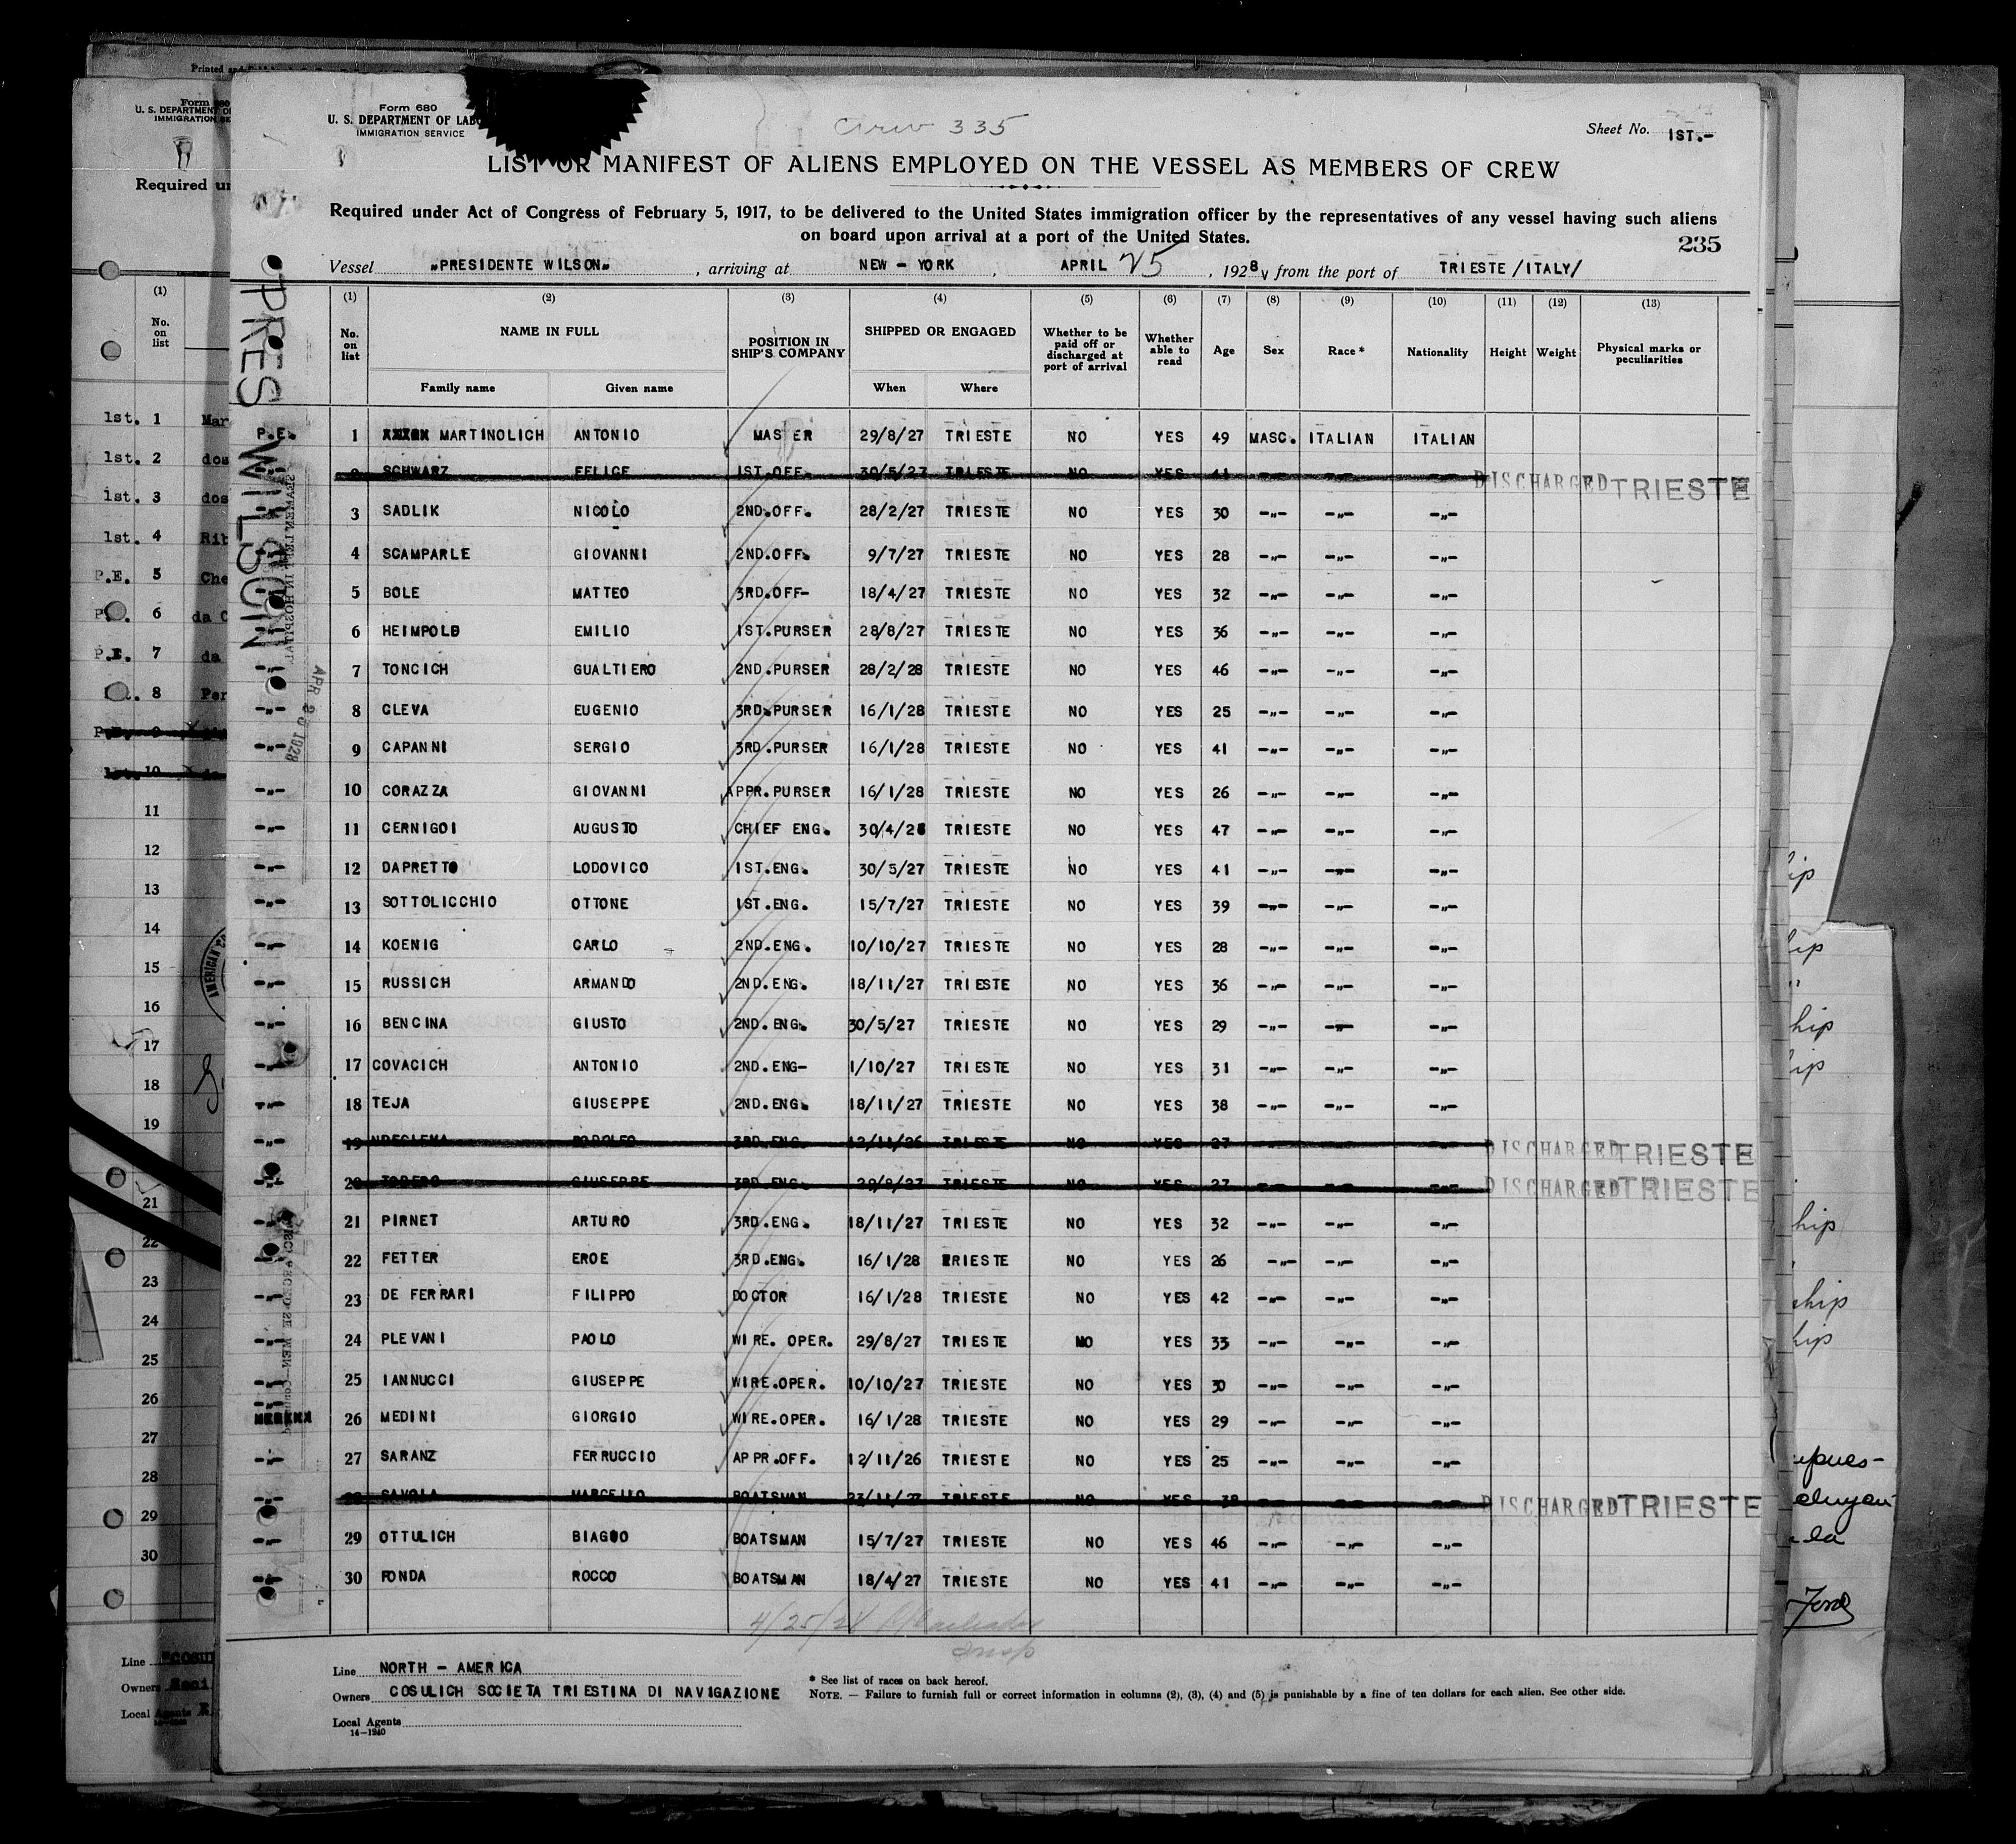 Form 680
U. S. DEPARTMENT OF LABO
IMMIGRATION SERVICE
Crew 335
Sheet No. 1ST.-
LIST OR MANIFEST OF ALIENS EMPLOYED ON THE VESSEL AS MEMBERS OF CREW
Required under Act of Congress of February 5, 1917, to be delivered to the United States immigration officer by the representatives of any vessel having such aliens
on board upon arrival at a port of the United States.
235
Vessel „PRESIDENTE WILSON„ , arriving at NEW – YORK , APRIL 25 , 1928, from the port of TRIESTE /ITALY/
PRES WILSON
(1) (2) (3) (4) (5) (6) (7) (8) (9) (10) (11) (12) (13)
No. on list NAME IN FULL Family name Given name POSITION IN SHIP'S COMPANY SHIPPED OR ENGAGED When Where Whether to be paid off or discharged at port of arrival Whether able to read Age Sex Race * Nationality Height Weight Physical marks or peculiarities
P.E. 1 MARTINOLICH ANTONIO MASTER 29/8/27 TRIESTE NO YES 49 MASC. ITALIAN ITALIAN
-„- 2 SCHWARZ FELICE 1ST.OFF. 30/5/27 TRIESTE NO YES 41 -„- -„- -„- DISCHARGED TRIESTE
-„- 3 SADLIK NICOLO 2ND.OFF. 28/2/27 TRIESTE NO YES 30 -„- -„- -„-
-„- 4 SCAMPARLE GIOVANNI 2ND.OFF. 9/7/27 TRIESTE NO YES 28 -„- -„- -„-
-„- 5 BOLE MATTEO 3RD.OFF- 18/4/27 TRIESTE NO YES 32 -„- -„- -„-
-„- 6 HEIMPOLD EMILIO 1ST.PURSER 28/8/27 TRIESTE NO YES 36 -„- -„- -„-
-„- 7 TONCICH GUALTIERO 2ND.PURSER 28/2/28 TRIESTE NO YES 46 -„- -„- -„-
-„- 8 CLEVA EUGENIO 3RD.PURSER 16/1/28 TRIESTE NO YES 25 -„- -„- -„-
-„- 9 CAPANNI SERGIO 3RD.PURSER 16/1/28 TRIESTE NO YES 41 -„- -„- -„-
-„- 10 CORAZZA GIOVANNI APPR.PURSER 16/1/28 TRIESTE NO YES 26 -„- -„- -„-
-„- 11 CERNIGOI AUGUSTO CHIEF ENG. 30/4/28 TRIESTE NO YES 47 -„- -„- -„-
-„- 12 DAPRETTO LODOVICO 1ST.ENG. 30/5/27 TRIESTE NO YES 41 -„- -„- -„-
-„- 13 SOTTOLICCHIO OTTONE 1ST.ENG. 15/7/27 TRIESTE NO YES 39 -„- -„- -„-
-„- 14 KOENIG CARLO 2ND.ENG. 10/10/27 TRIESTE NO YES 28 -„- -„- -„-
-„- 15 RUSSICH ARMANDO 2ND.ENG. 18/11/27 TRIESTE NO YES 36 -„- -„- -„-
-„- 16 BENCINA GIUSTO 2ND.ENG. 30/5/27 TRIESTE NO YES 29 -„- -„- -„-
-„- 17 COVACICH ANTONIO 2ND.ENG- 1/10/27 TRIESTE NO YES 31 -„- -„- -„-
-„- 18 TEJA GIUSEPPE 2ND.ENG. 18/11/27 TRIESTE NO YES 38 -„- -„- -„-
-„- 19 RODOLFO 3RD.ENG. 12/11/26 TRIESTE NO YES 27 -„- -„- -„- DISCHARGED TRIESTE
-„- 20 GIUSEPPE 3RD.ENG. 29/8/27 TRIESTE NO YES 27 -„- -„- -„- DISCHARGED TRIESTE
-„- 21 PIRNET ARTURO 3RD.ENG. 18/11/27 TRIESTE NO YES 32 -„- -„- -„-
-„- 22 FETTER EROE 3RD.ENG. 16/1/28 TRIESTE NO YES 26 -„- -„- -„-
-„- 23 DE FERRARI FILIPPO DOCTOR 16/1/28 TRIESTE NO YES 42 -„- -„- -„-
-„- 24 PLEVANI PAOLO WIRE. OPER. 29/8/27 TRIESTE NO YES 33 -„- -„- -„-
-„- 25 IANNUCCI GIUSEPPE WIRE.OPER. 10/10/27 TRIESTE NO YES 30 -„- -„- -„-
-„- 26 MEDINI GIORGIO WIRE.OPER. 16/1/28 TRIESTE NO YES 29 -„- -„- -„-
-„- 27 SARANZ FERRUCCIO APPR.OFF. 12/11/26 TRIESTE NO YES 25 -„- -„- -„-
-„- 28 SAVOLA MARCELLO BOATSMAN 23/11/27 TRIESTE NO YES 38 -„- -„- -„- DISCHARGED TRIESTE
-„- 29 OTTULICH BIAGIO BOATSMAN 15/7/27 TRIESTE NO YES 46 -„- -„- -„-
-„- 30 FONDA ROCCO BOATSMAN 18/4/27 TRIESTE NO YES 41 -„- -„- -„-
4/25/28
Insp
Line NORTH – AMERICA
Owners COSULICH SOCIETA TRIESTINA DI NAVIGAZIONE
Local Agents
14—1240
* See list of races on back hereof.
NOTE. — Failure to furnish full or correct information in columns (2), (3), (4) and (5) is punishable by a fine of ten dollars for each alien. See other side.